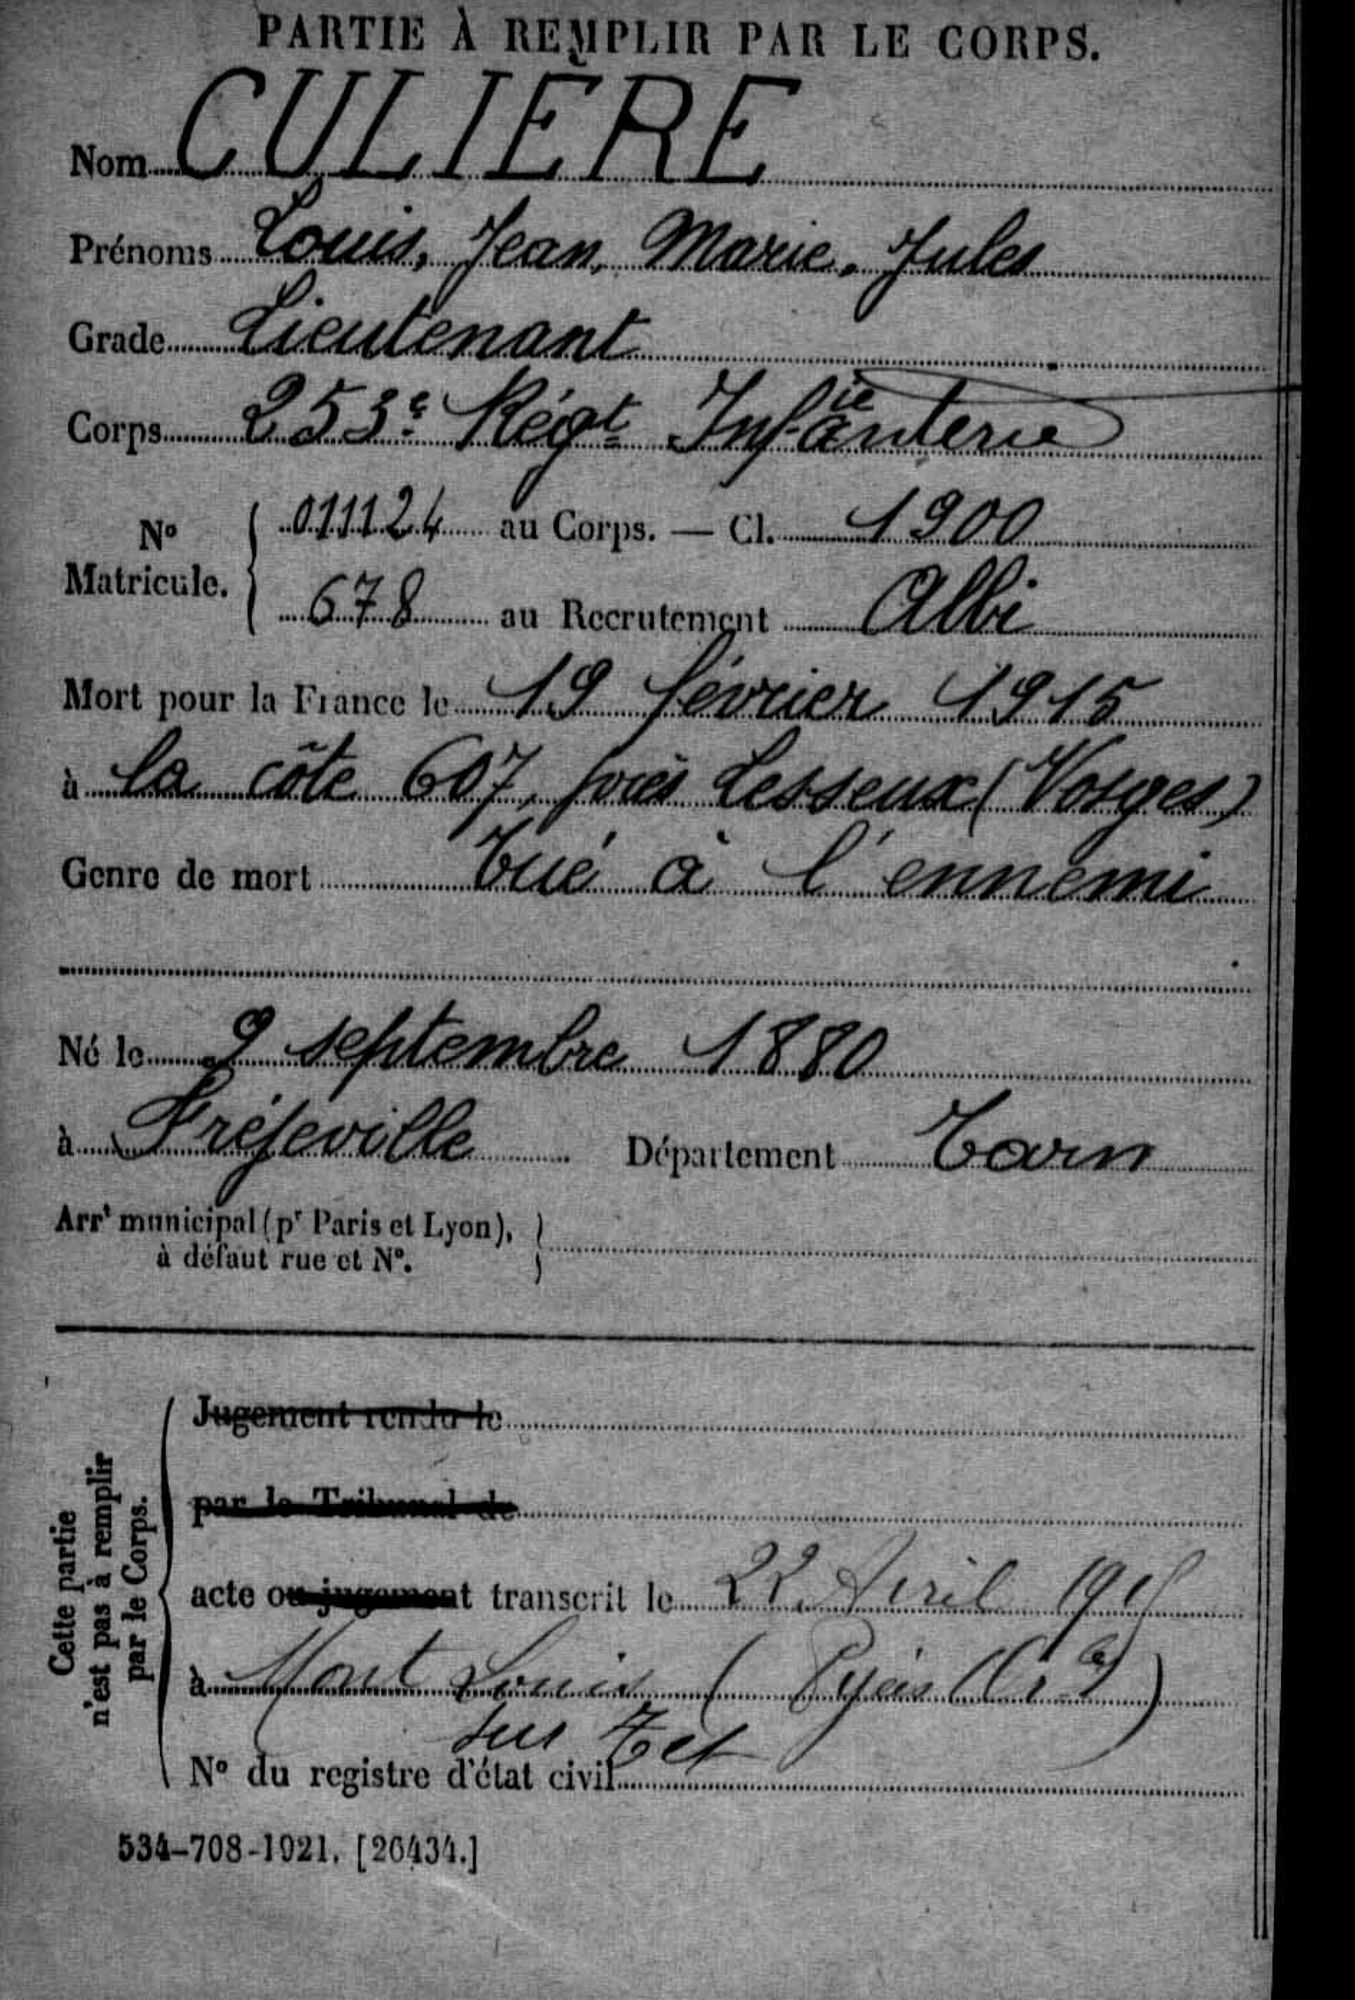 PARTIE À REMPLIR PAR LE CORPS.
Nom CULIÈRE
Prénoms Louis, Jean, Marie, Jules
Grade Lieutenant
Corps 253e Régt Infanterie
No Matricule. 011124 au Corps. — Cl. 1900
678 au Recrutement Albi
Mort pour la France le 19 février 1915
à la côte 607, près Lesseux (Vosges)
Genre de mort Tué à l'ennemi
Né le 9 septembre 1880
à Fréjeville Département Tarn
Arrt municipal (pr Paris et Lyon),
à défaut rue et No.
Cette partie
n'est pas à remplir
par le Corps.
Jugement rendu le
par le Tribunal de
acte ou jugement transcrit le 22 Avril 1915
à Mont Louis (Pyées Ores)
sur Tet
No du registre d'état civil
534-708-1921. [26434.]